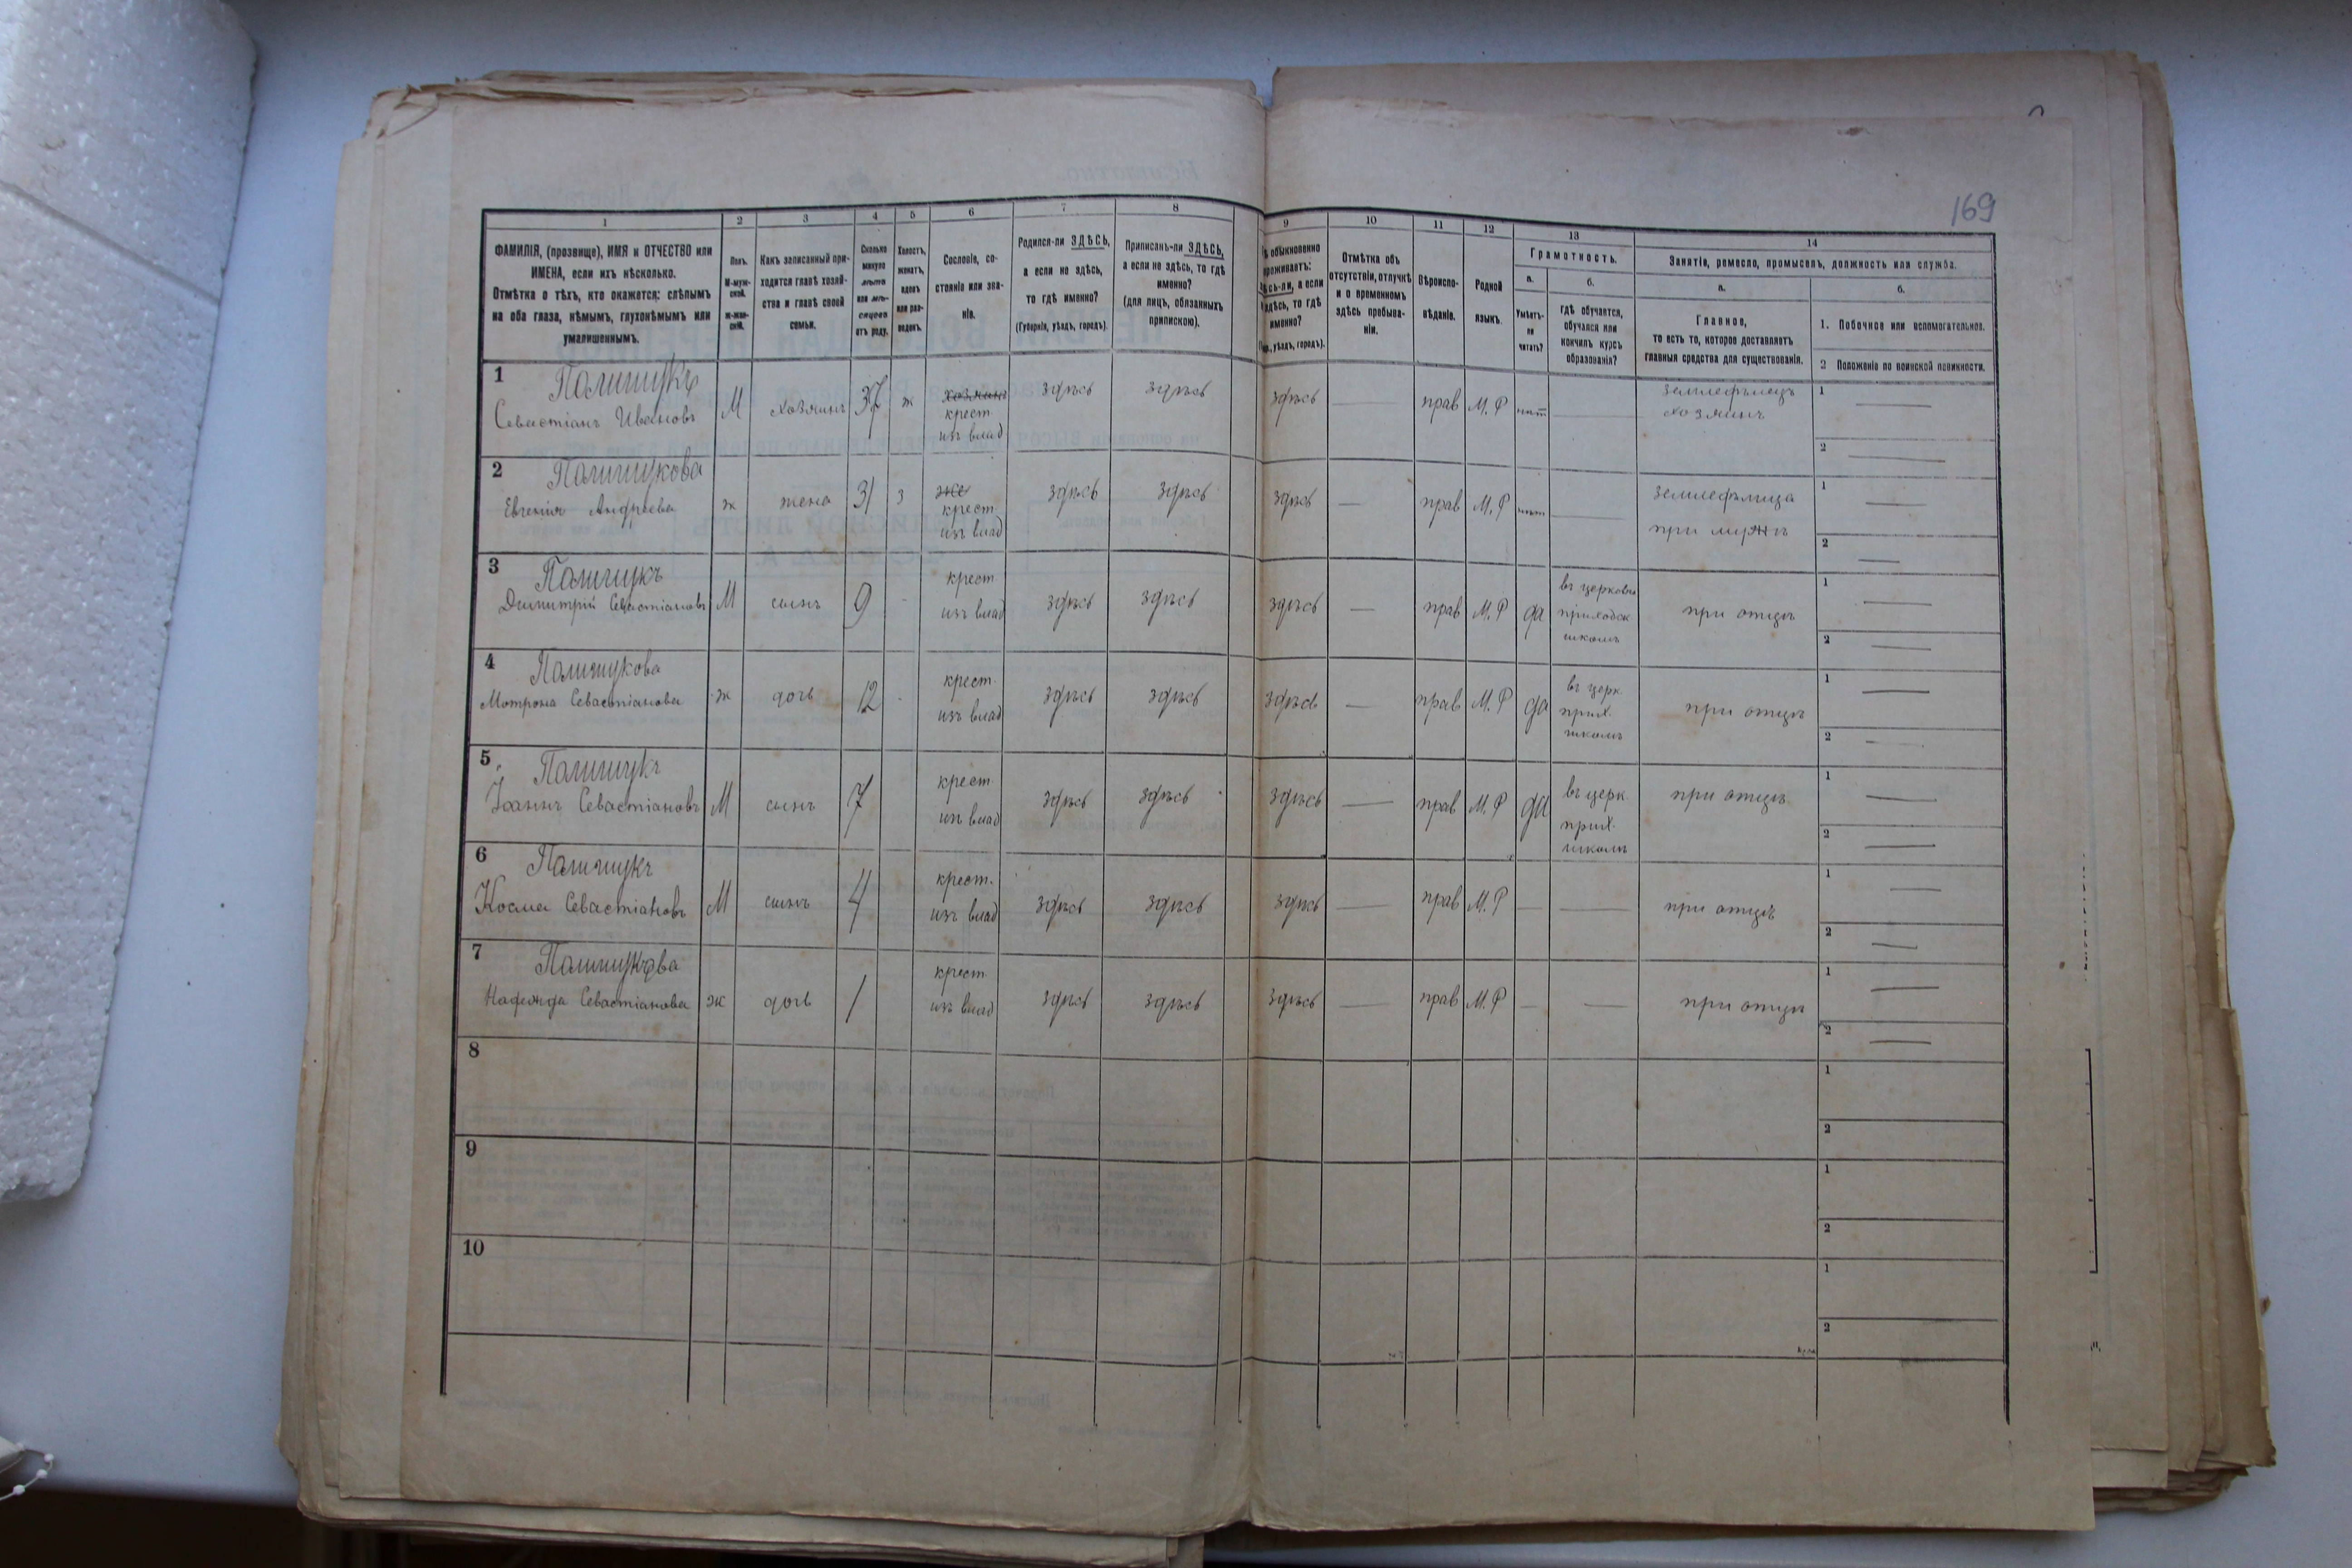 169
1 2 3 4 5 6 7 8 9 10 11 12 13 14
ФАМИЛІЯ, (прозвище), ИМЯ и ОТЧЕСТВО или
ИМЕНА, если ихъ нѣсколько.
Отмѣтка о тѣхъ, кто окажется: слѣпымъ
на оба глаза, нѣмымъ, глухонѣмымъ или
умалишеннымъ.
Полъ.
М-муж-
ской.
ж-жен-
скій.
Какъ записанный при-
ходится главѣ хозяй-
ства и главѣ своей
семьи.
Сколько
минуло
лѣтъ
или мѣ-
сяцевъ
отъ роду.
Холостъ,
женатъ,
вдовъ
или раз-
веденъ.
Сословіе, со-
стояніе или зва-
ніе.
Родился-ли ЗДѢСЬ,
а если не здѣсь,
то гдѣ именно?
(Губернія, уѣздъ, городъ).
Приписанъ-ли ЗДѢСЬ,
а если не здѣсь, то гдѣ
именно?
(для лицъ, обязанныхъ
припискою).
обыкновенно
проживаетъ:
а если
здѣсь, то гдѣ
именно?
уѣздъ, городъ).
Отмѣтка объ
отсутствіи, отлучкѣ
и о временномъ
здѣсь пребыва-
ніи.
Вѣроиспо-
вѣданіе.
Родной
языкъ.
Грамотность.
а.
Умѣетъ-
ли
читать?
б.
гдѣ обучается,
обучался или
кончилъ курсъ
образованія?
Занятіе, ремесло, промыселъ, должность или служба.
а.
Главное,
то есть то, которое доставляетъ
главныя средства для существованія.
б.
1. Побочное или вспомогательное.
2 Положеніе по воинской повинности.
1 Полищукъ
Севастіанъ Ивановъ М хозяинъ 37 ж хозяинъ
крест
изъ влад здѣсь здѣсь здѣсь — прав М. Р нѣт — земледѣлецъ
хозяинъ 1 —
2 —
2 Полищукова
Евгенія Андреева ж жена 31 з
крест
изъ влад здѣсь здѣсь здѣсь — прав М. Р нѣт — земледѣлица
при мужѣ 1 —
2 —
3 Полищукъ
Димитрій Севастіановъ М сынъ 9 - крест
изъ влад здѣсь здѣсь здѣсь — прав М. Р да въ церковно
приходск
школѣ при отцѣ 1 —
2 —
4 Полищукова
Мотрона Севастіанова ж дочь 12 - крест.
изъ влад здѣсь здѣсь здѣсь — прав М. Р да въ церк.
прих.
школѣ при отцѣ 1 —
2 —
5 Полищукъ
Іоаннъ Севастіановъ М сынъ 7 крест.
изъ влад здѣсь здѣсь здѣсь — прав М. Р да въ церк
прих.
школѣ при отцѣ 1 —
2 —
6 Полищукъ
Косма Севастіановъ М сынъ 4 крест.
изъ влад здѣсь здѣсь здѣсь — прав М. Р — — при отцѣ 1 —
2 —
7 Полищукова
Надежда Севастіанова ж дочь 1 крест.
изъ влад здѣсь здѣсь здѣсь — прав М. Р — — при отцѣ 1 —
2 —
8 1
2
9 1
2
10 1
2